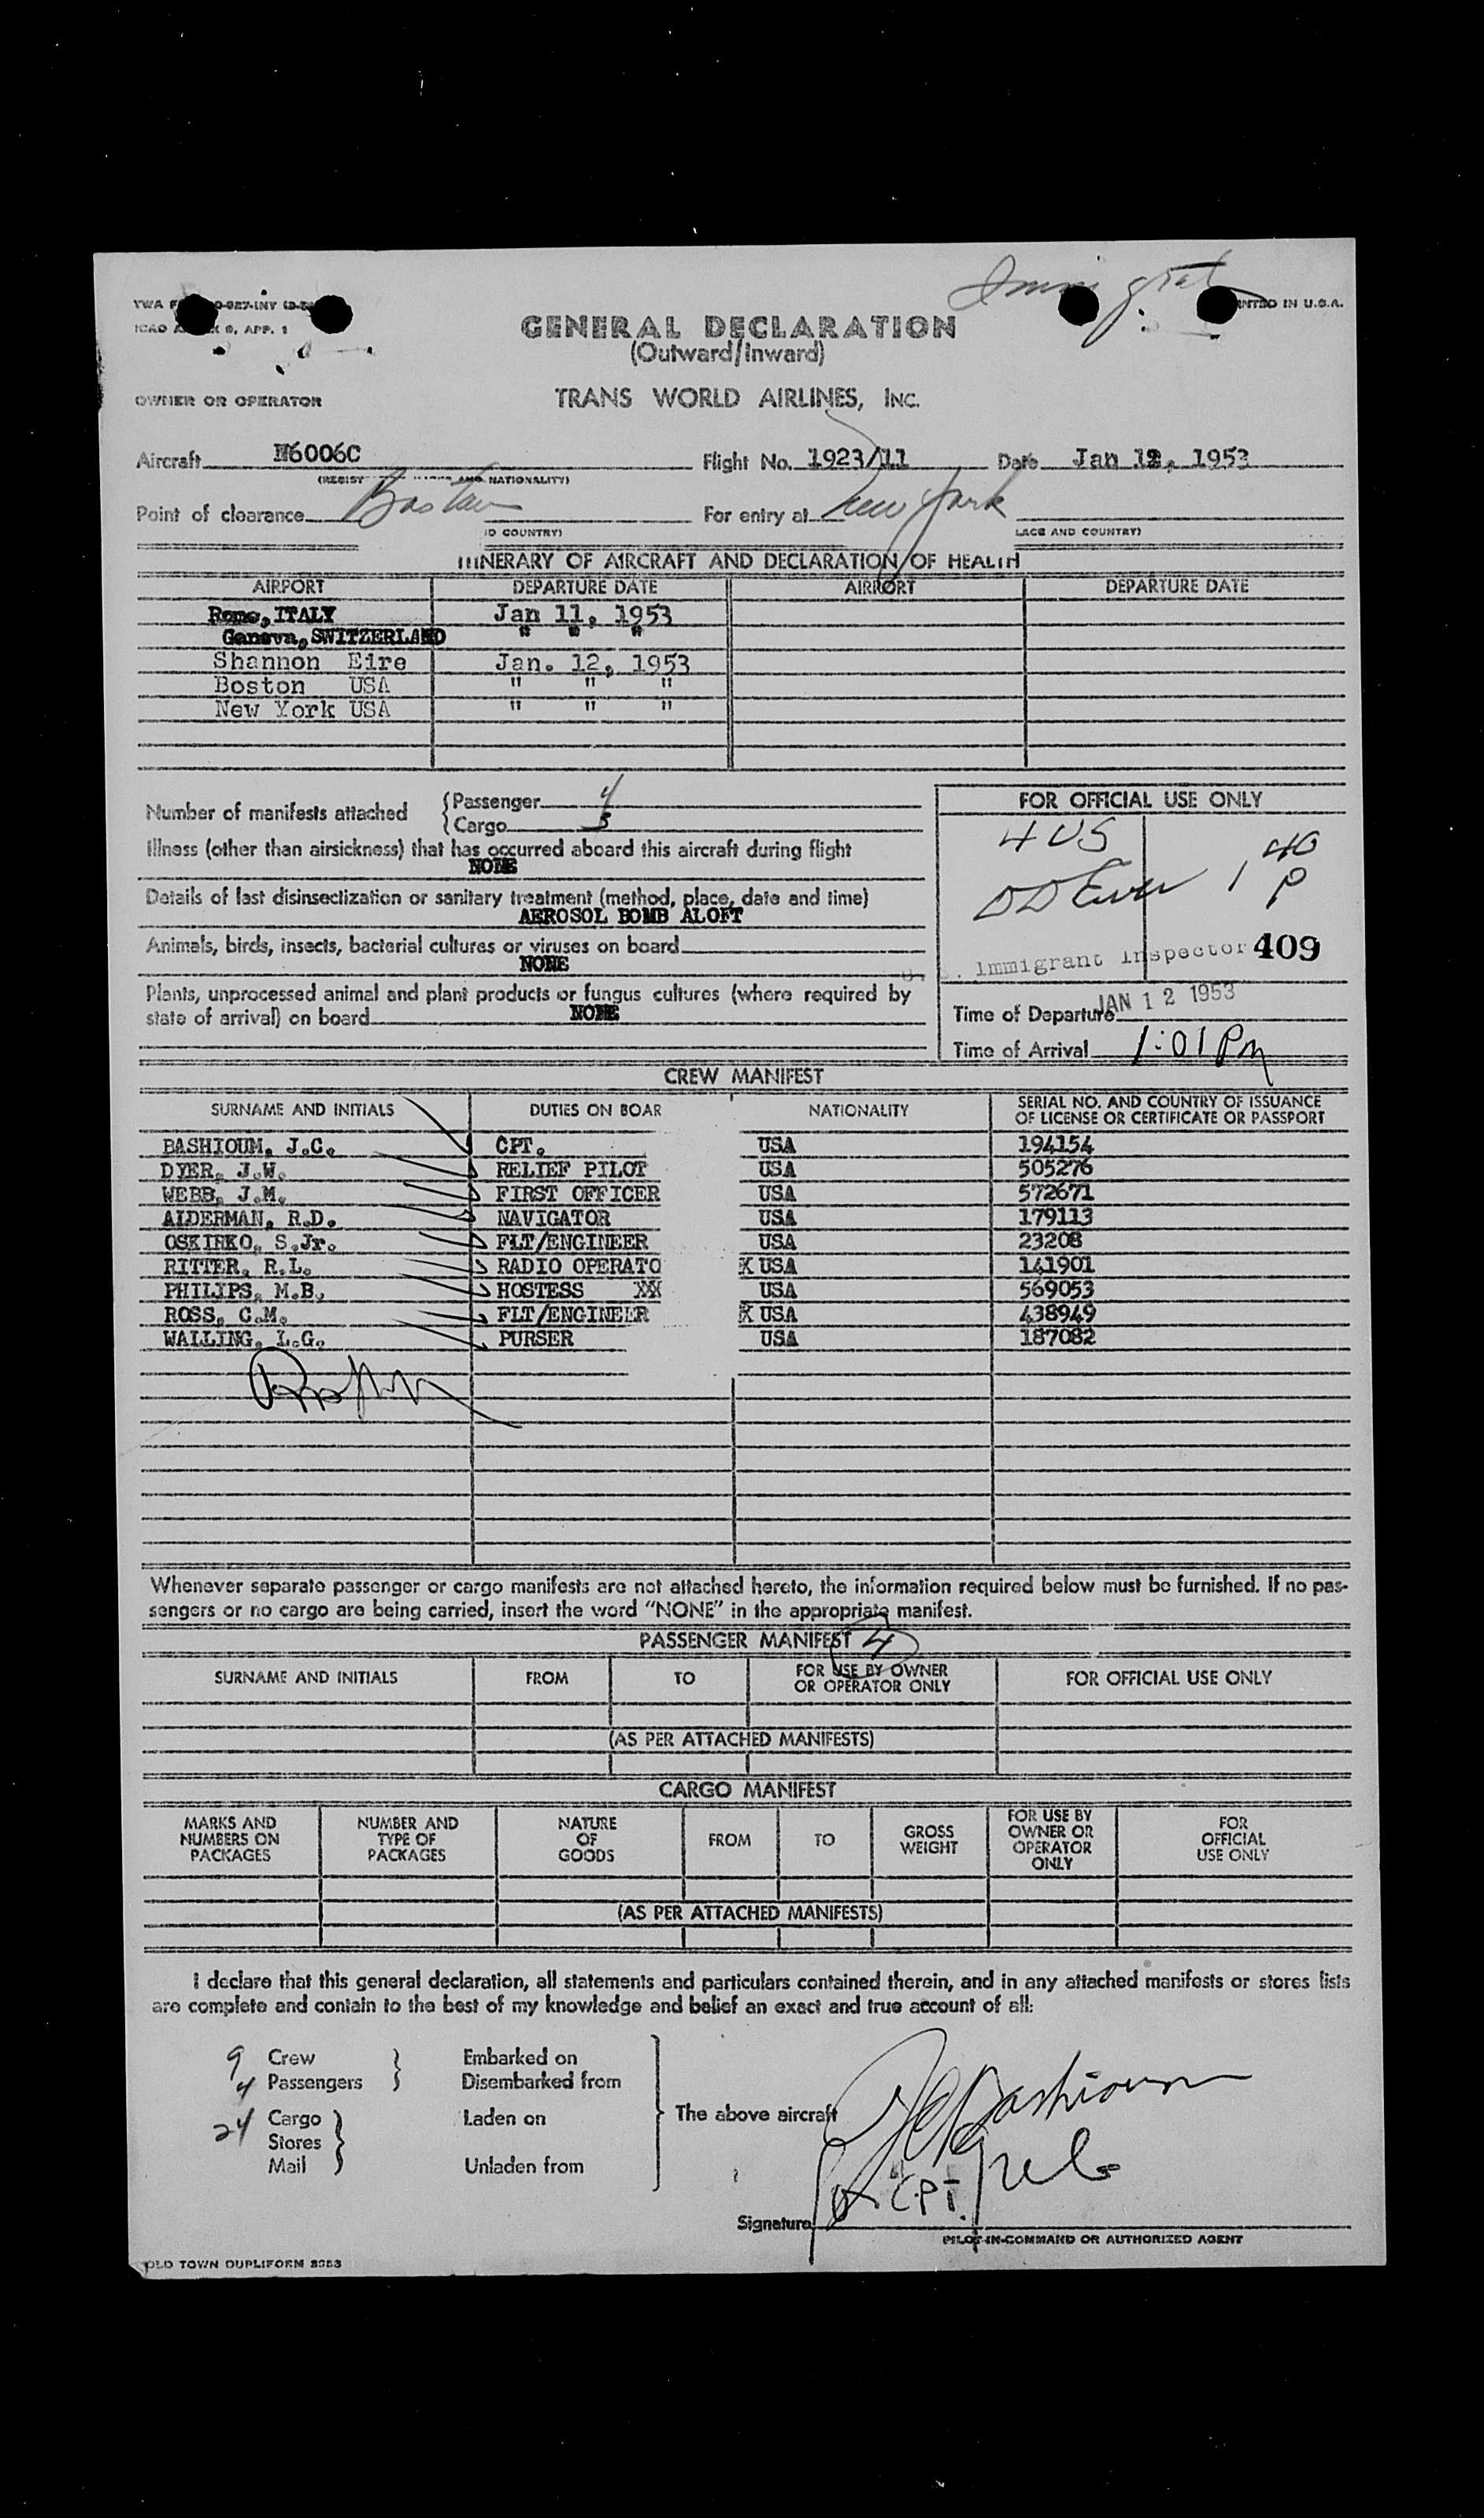 GENERAL DECLARATION
(Outward/Inward)
OWNER OR OPERATOR TRANS WORLD AIRLINES, INC.
Aircraft N6006C Flight No. 1923/11 Date Jan 12, 1953
NATIONALITY)
Point of clearance Boston For entry at New York
COUNTRY) AND COUNTRY)
ITINERARY OF AIRCRAFT AND DECLARATION OF HEALTH
AIRPORT DEPARTURE DATE AIRPORT DEPARTURE DATE
Rome, ITALY Jan 11, 1953
Geneva, SWITZERLAND " " "
Shannon Eire Jan. 12, 1953
Boston USA " " "
New York USA " " "
Number of manifests attached
Passenger 4
Cargo
Illness (other than airsickness) that has occurred aboard this aircraft during flight
NONE
Details of last disinsectization or sanitary treatment (method, place, date and time)
AEROSOL BOMB ALOFT
Animals, birds, insects, bacterial cultures or viruses on board
NONE
Plants, unprocessed animal and plant products or fungus cultures (where required by
state of arrival) on board NONE
FOR OFFICIAL USE ONLY
4 US
Immigrant Inspector 409
Time of Departure JAN 12 1953
Time of Arrival 1:01 Pm
CREW MANIFEST
SURNAME AND INITIALS DUTIES ON BOAR NATIONALITY SERIAL NO. AND COUNTRY OF ISSUANCE
OF LICENSE OR CERTIFICATE OR PASSPORT
BASHIOUM, J.C. CPT. USA 194154
DYER, J.W. RELIEF PILOT USA 505276
WEBB, J.M. FIRST OFFICER USA 572671
ALDERMAN, R.D. NAVIGATOR USA 179113
OSKIRKO, S.Jr. FLT/ENGINEER USA 23208
RITTER, R.L. RADIO OPERATO USA 141901
PHILIPS, M.B. HOSTESS XX USA 569053
ROSS, C.M. FLT/ENGINEER USA 438949
WALLING, L.G. PURSER USA 187082
Whenever separate passenger or cargo manifests are not attached hereto, the information required below must be furnished. If no pas-
sengers or no cargo are being carried, insert the word "NONE" in the appropriate manifest.
PASSENGER MANIFEST 4
SURNAME AND INITIALS FROM TO FOR USE BY OWNER
OR OPERATOR ONLY FOR OFFICIAL USE ONLY
(AS PER ATTACHED MANIFESTS)
CARGO MANIFEST
MARKS AND
NUMBERS ON
PACKAGES
NUMBER AND
TYPE OF
PACKAGES
NATURE
OF
GOODS
FROM
TO
GROSS
WEIGHT
FOR USE BY
OWNER OR
OPERATOR
ONLY
FOR
OFFICIAL
USE ONLY
(AS PER ATTACHED MANIFESTS)
I declare that this general declaration, all statements and particulars contained therein, and in any attached manifests or stores lists
are complete and contain to the best of my knowledge and belief an exact and true account of all:
9 Crew Embarked on
4 Passengers Disembarked from
24 Cargo Laden on The above aircraft
Stores
Mail Unladen from
JC Bashioum
CPT.
Signature
PILOT-IN-COMMAND OR AUTHORIZED AGENT
OLD TOWN DUPLIFORM